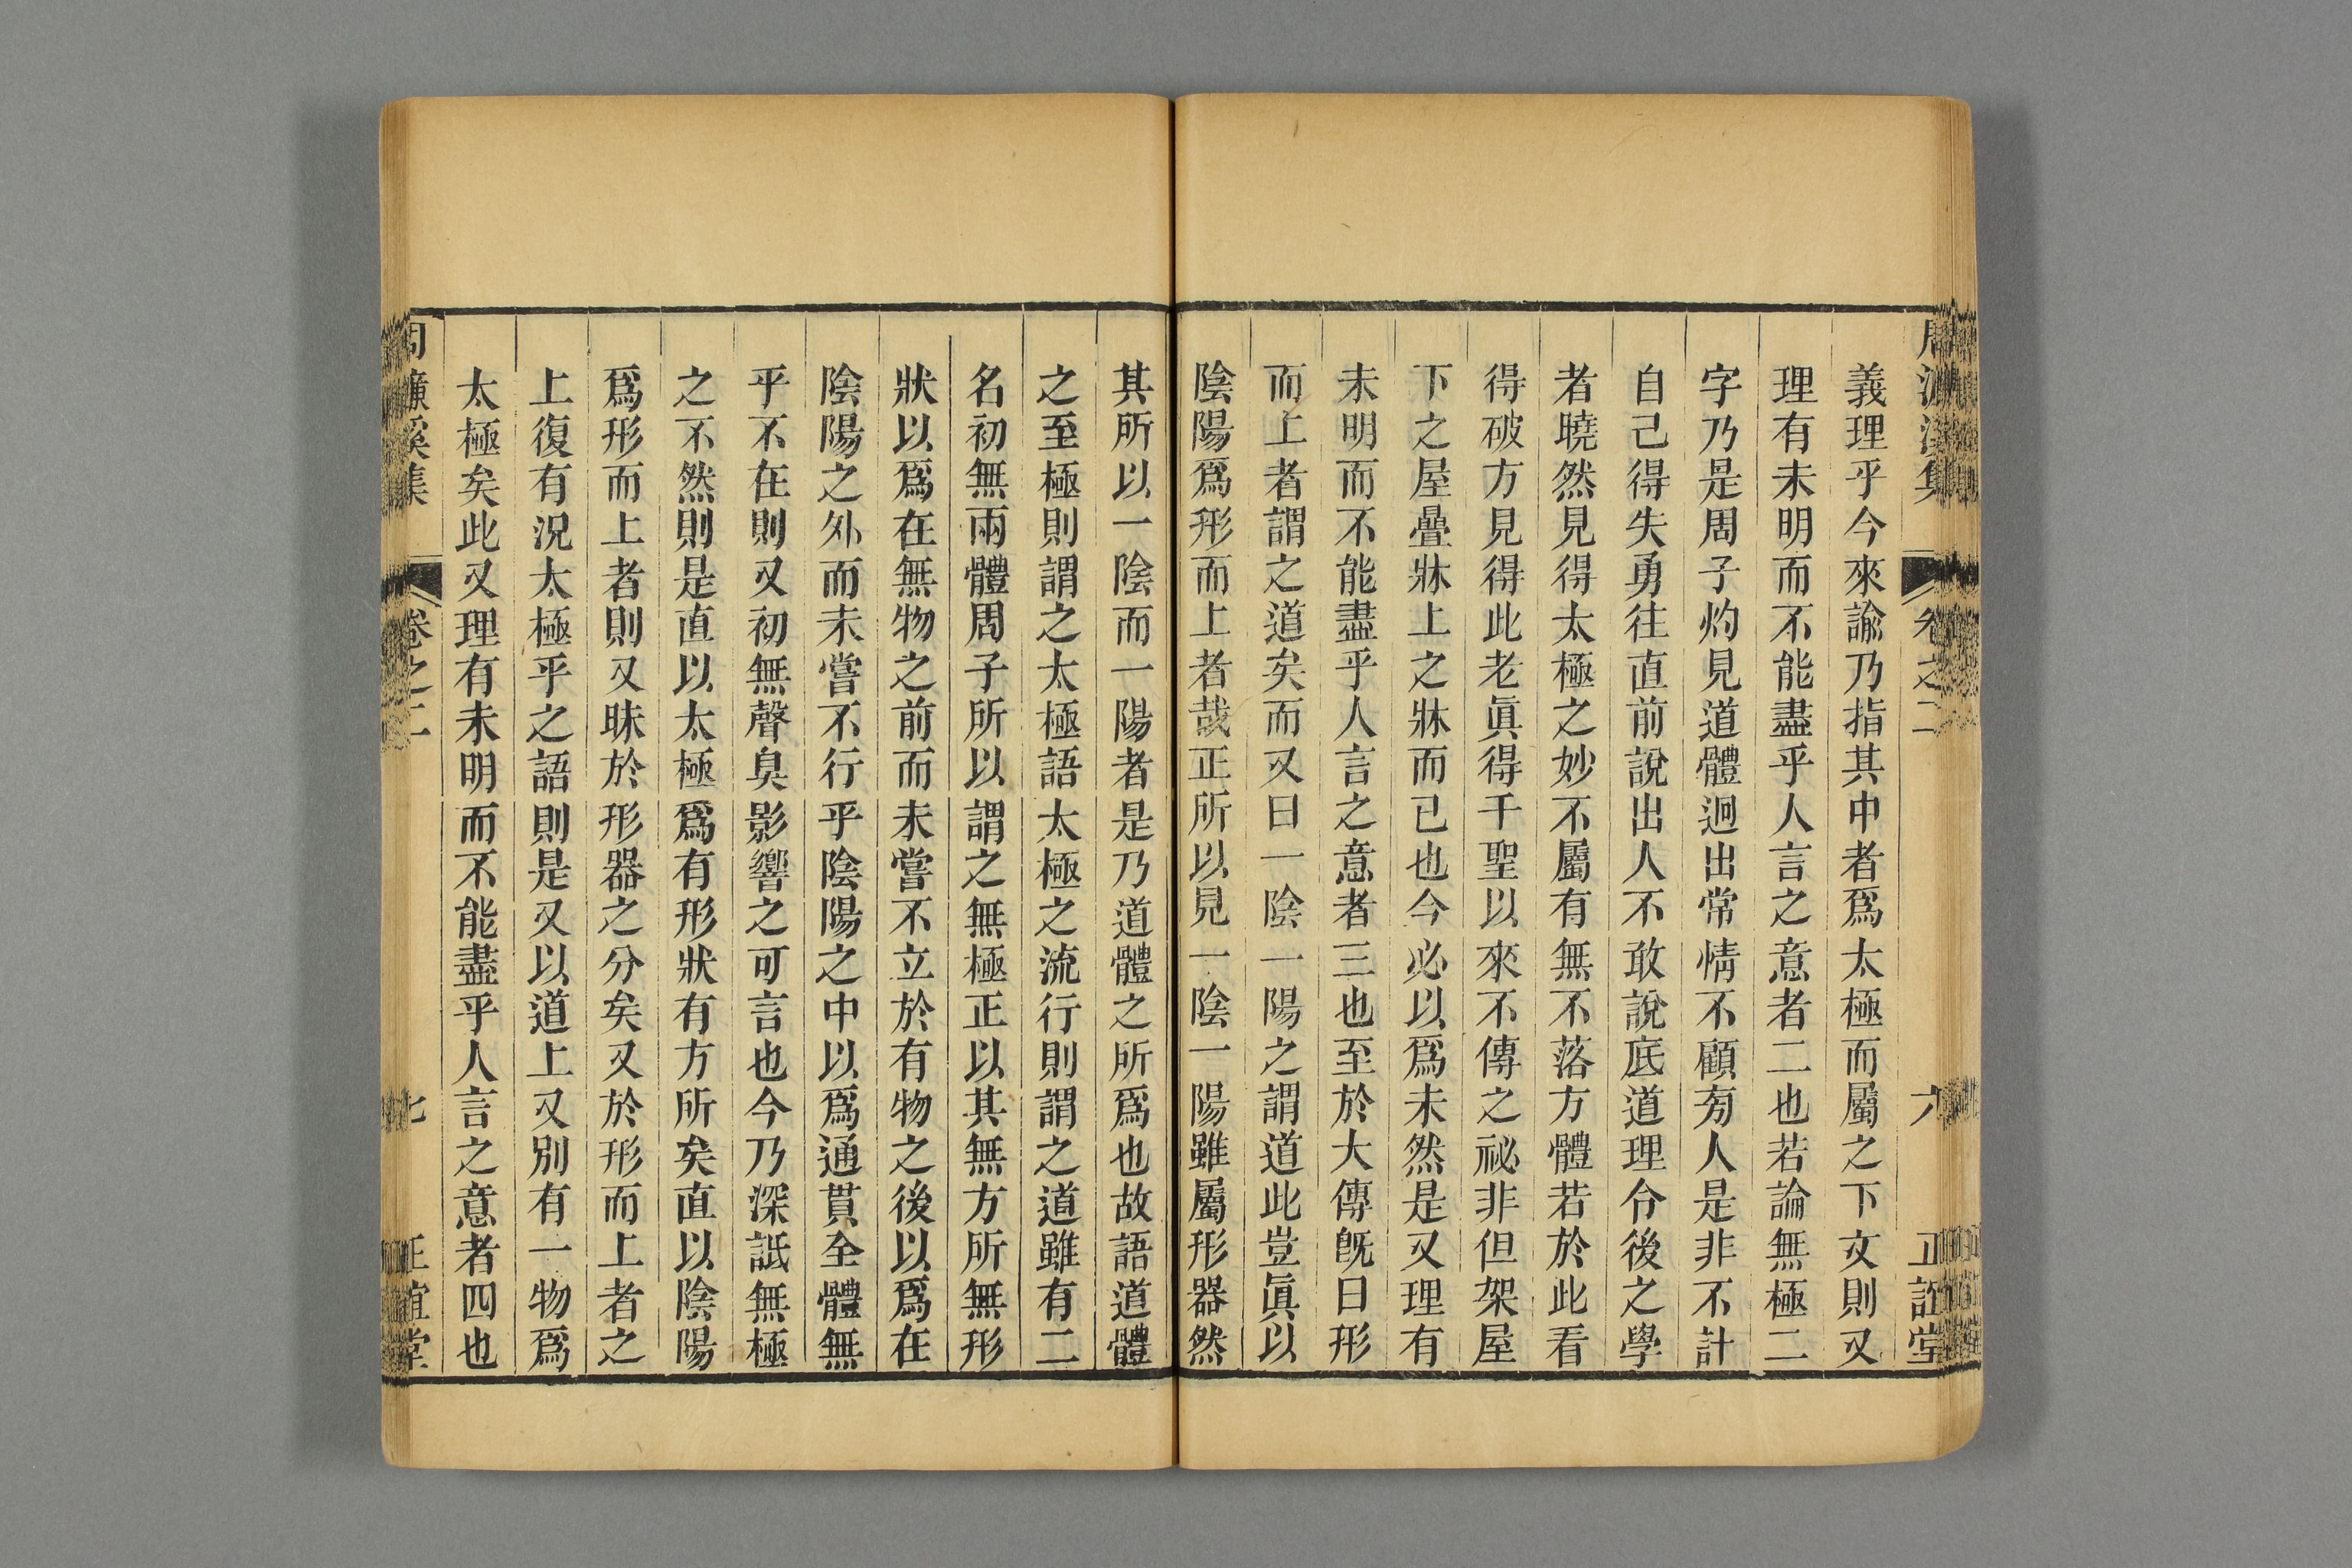 周濂溪集 卷之二 六 正誼堂
義理乎今來諭乃指其中者爲太極而屬之下文則又
理有未明而不能盡乎人言之意者二也若論無極二
字乃是周子灼見道體迥出常情不顧旁人是非不計
自己得失勇往直前說出人不敢說底道理令後之學
者曉然見得太極之妙不屬有無不落方體若於此看
得破方見得此老眞得千聖以來不傳之祕非但架屋
下之屋疊牀上之牀而已也今必以爲未然是又理有
未明而不能盡乎人言之意者三也至於大傳旣曰形
而上者謂之道矣而又曰一陰一陽之謂道此豈眞以
陰陽爲形而上者哉正所以見一陰一陽雖屬形器然
其所以一陰而一陽者是乃道體之所爲也故語道體
之至極則謂之太極語太極之流行則謂之道雖有二
名初無兩體周子所以謂之無極正以其無方所無形
狀以爲在無物之前而未嘗不立於有物之後以爲在
陰陽之外而未嘗不行乎陰陽之中以爲通貫全體無
乎不在則又初無聲臭影響之可言也今乃深詆無極
之不然則是直以太極爲有形狀有方所矣直以陰陽
爲形而上者則又昧於形器之分矣又於形而上者之
上復有況太極乎之語則是又以道上又別有一物爲
太極矣此又理有未明而不能盡乎人言之意者四也
周濂溪集 卷之二 七 正誼堂